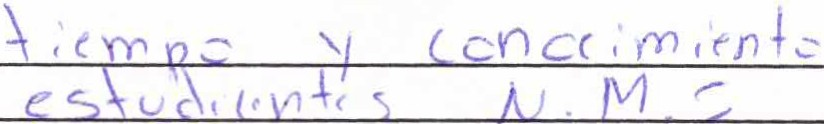 tiempo y conocimiento
estudiantes N.M.S